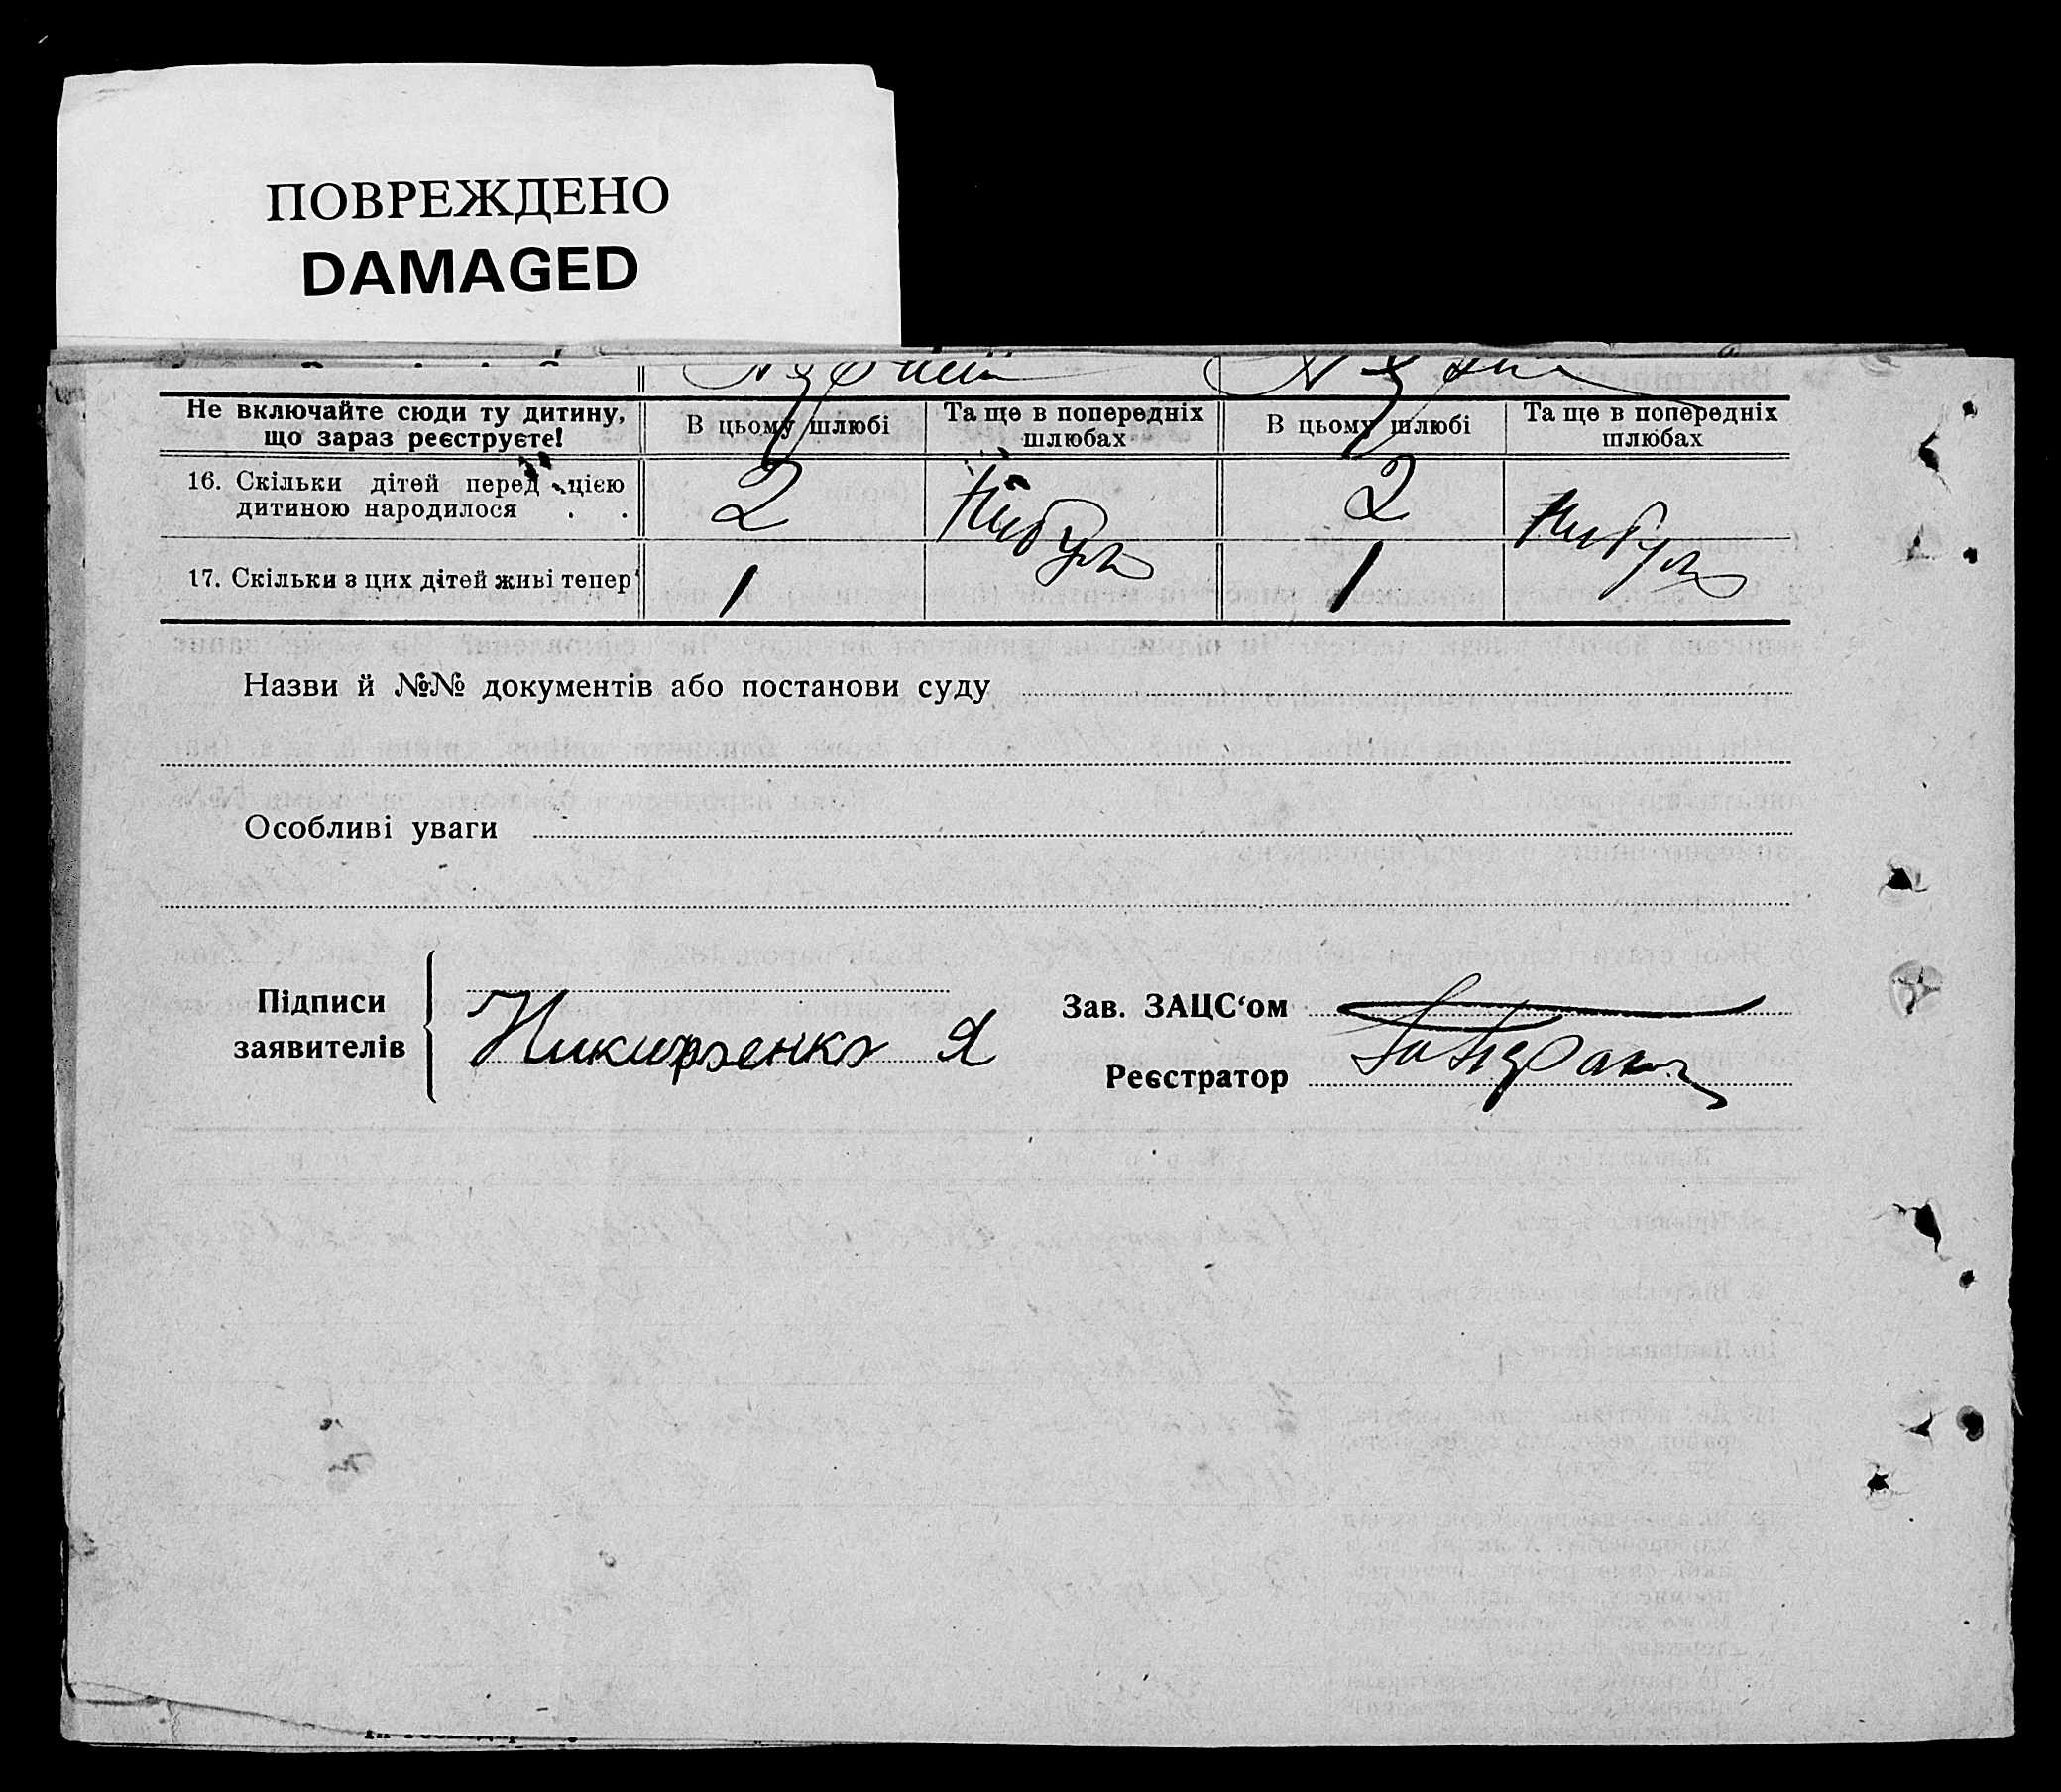 ПОВРЕЖДЕНО
DAMAGED
Не включайте сюди ту дитину, що зараз реєструєте!
В цьому шлюбі
Та ще в попередніх шлюбах
В цьому шлюбі
Та ще в попередніх шлюбах
16. Скільки дітей перед цією дитиною народилося . .
2
Небуло
2
Небуло
17. Скільки з цих дітей живі тепер
1
1
Назви й №№ документів або постанови суду
Особливі уваги
Підписи заявителів
Я
Зав. ЗАЦС‘ом
Реєстратор